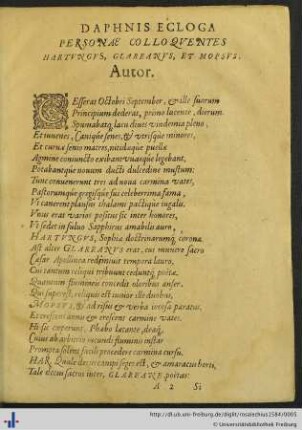 DAPHNIS ECLOGA
PERSONAE COLLOQVENTES
HARTVNGVS, GLAREANVS, ET MOPSVS.
Autor.
CEsserat Octobri September, & ille suorum
Principium dederat, primo lucente, dierum
Spumabatq; lacu diues vindemia pleno,
Et iuuenes, Caniq́ue senes, & verisq́ue minores,
Et curuæ senio matres, nitidæque puellæ
Agmine coniuncto exibant vuasque legebant,
Potabantque nouum ducti dulcedine mustum:
Tunc conuenerunt tres ad noua carmina vates,
Pastorumque gregisque sui celeberrima fama,
Vt canerent plausus thalami pactique iugalis.
Vnus erat varios positus sic inter honores,
Vt sedet in fuluo Sapphirus amabilis auro,
HARTVNGVS, Sophiæ doctrinarumq; corona.
Ast alter GLAREANVS erat, cui munera sacro
Cæsar Apollinea redimiuit tempora lauro,
Cui tantum reliqui tribuunt ceduntq́; poëtæ
Quantum fluuineo concedit oloribus anser.
Qui superest, reliquus est iunior ille duobus,
MOPSVS, & ad risus & verba iocosa paratus,
Et crescens annis & crescens carmine vates.
Hosic cœperunt, Phœbo lactante, deaq́;
Cuius ab arbitrio iucundi fluminis instar
Prompta solent facili procedere carmina cursu.
HAR. Quale decus campi seges est, & amaracus horti,
Tale decus sacros inter, GLAREANE, poëtas:
A 2 Si
http://dl.ub.uni-freiburg.de/diglit/rosalechius1584/0005
© Universitätsbibliothek Freiburg